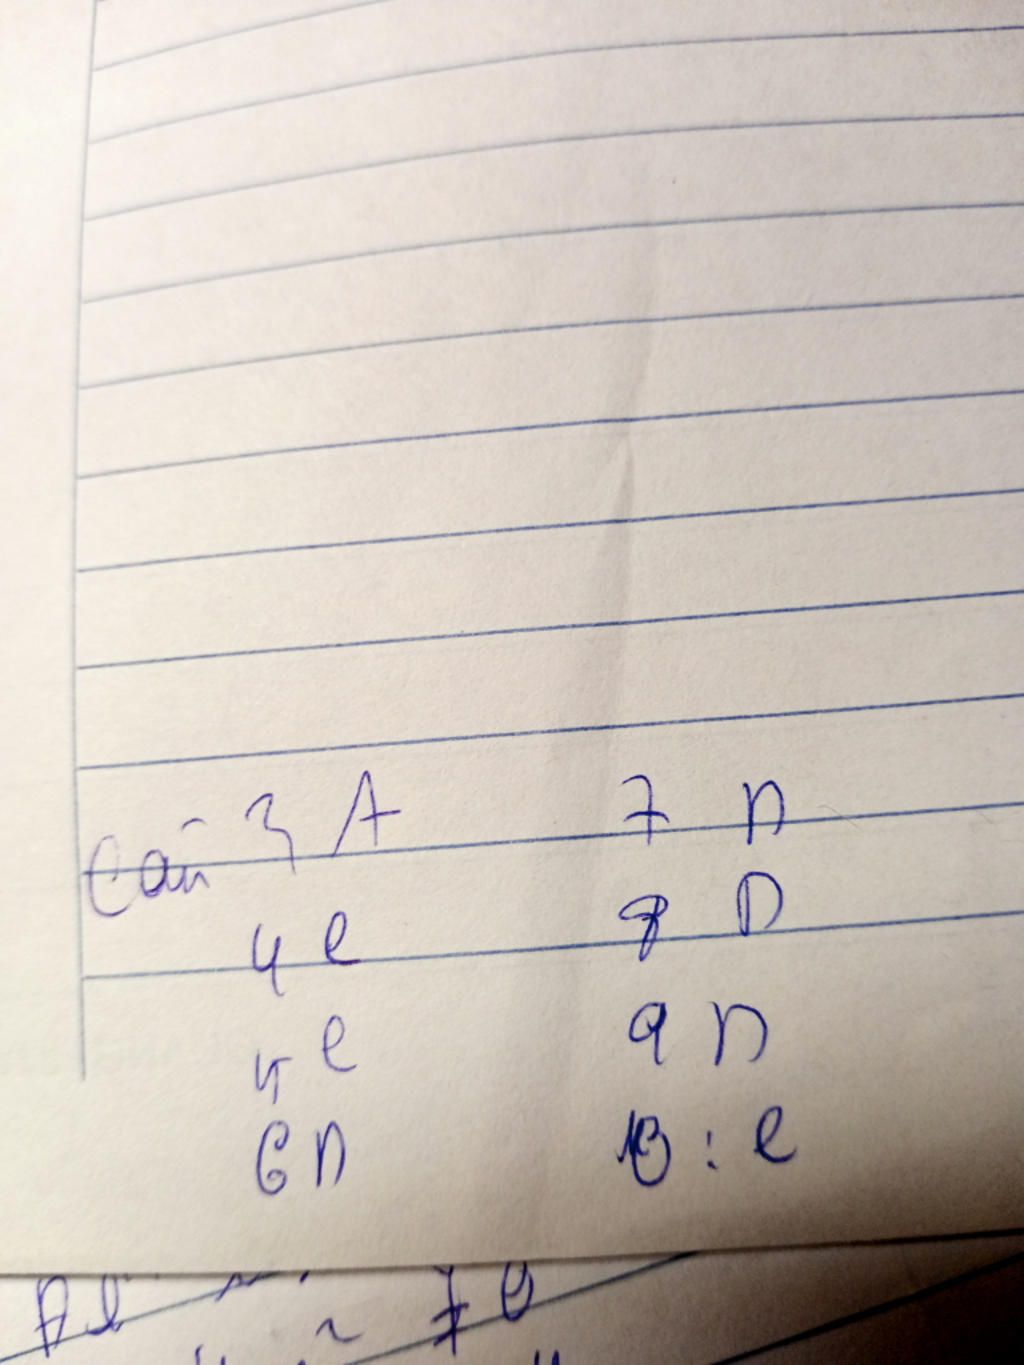 Câu 3 A 7 D
4 C 8 D
5 C 9 D
6 D 10 : C